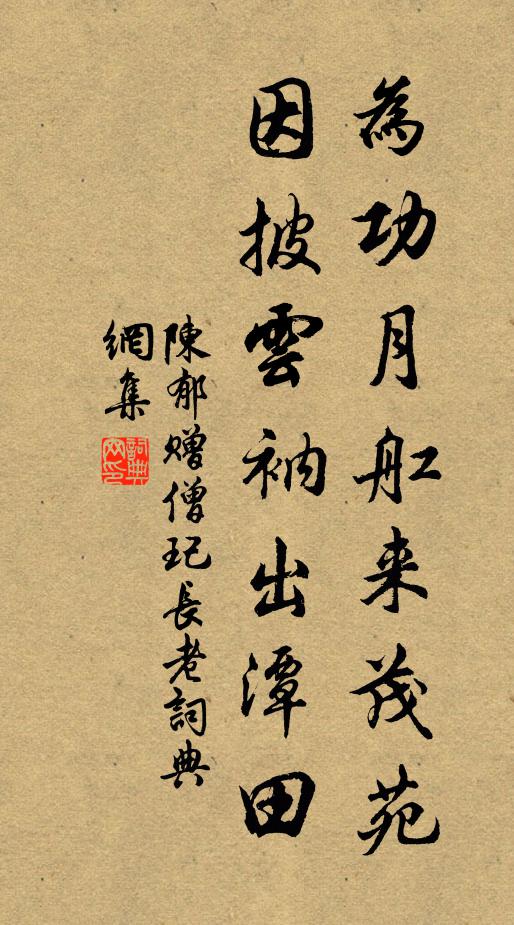 為功月舡来茂苑
因披雲衲出潭田
陳郁贈僧玘長老詞典
網集
詞典
网印